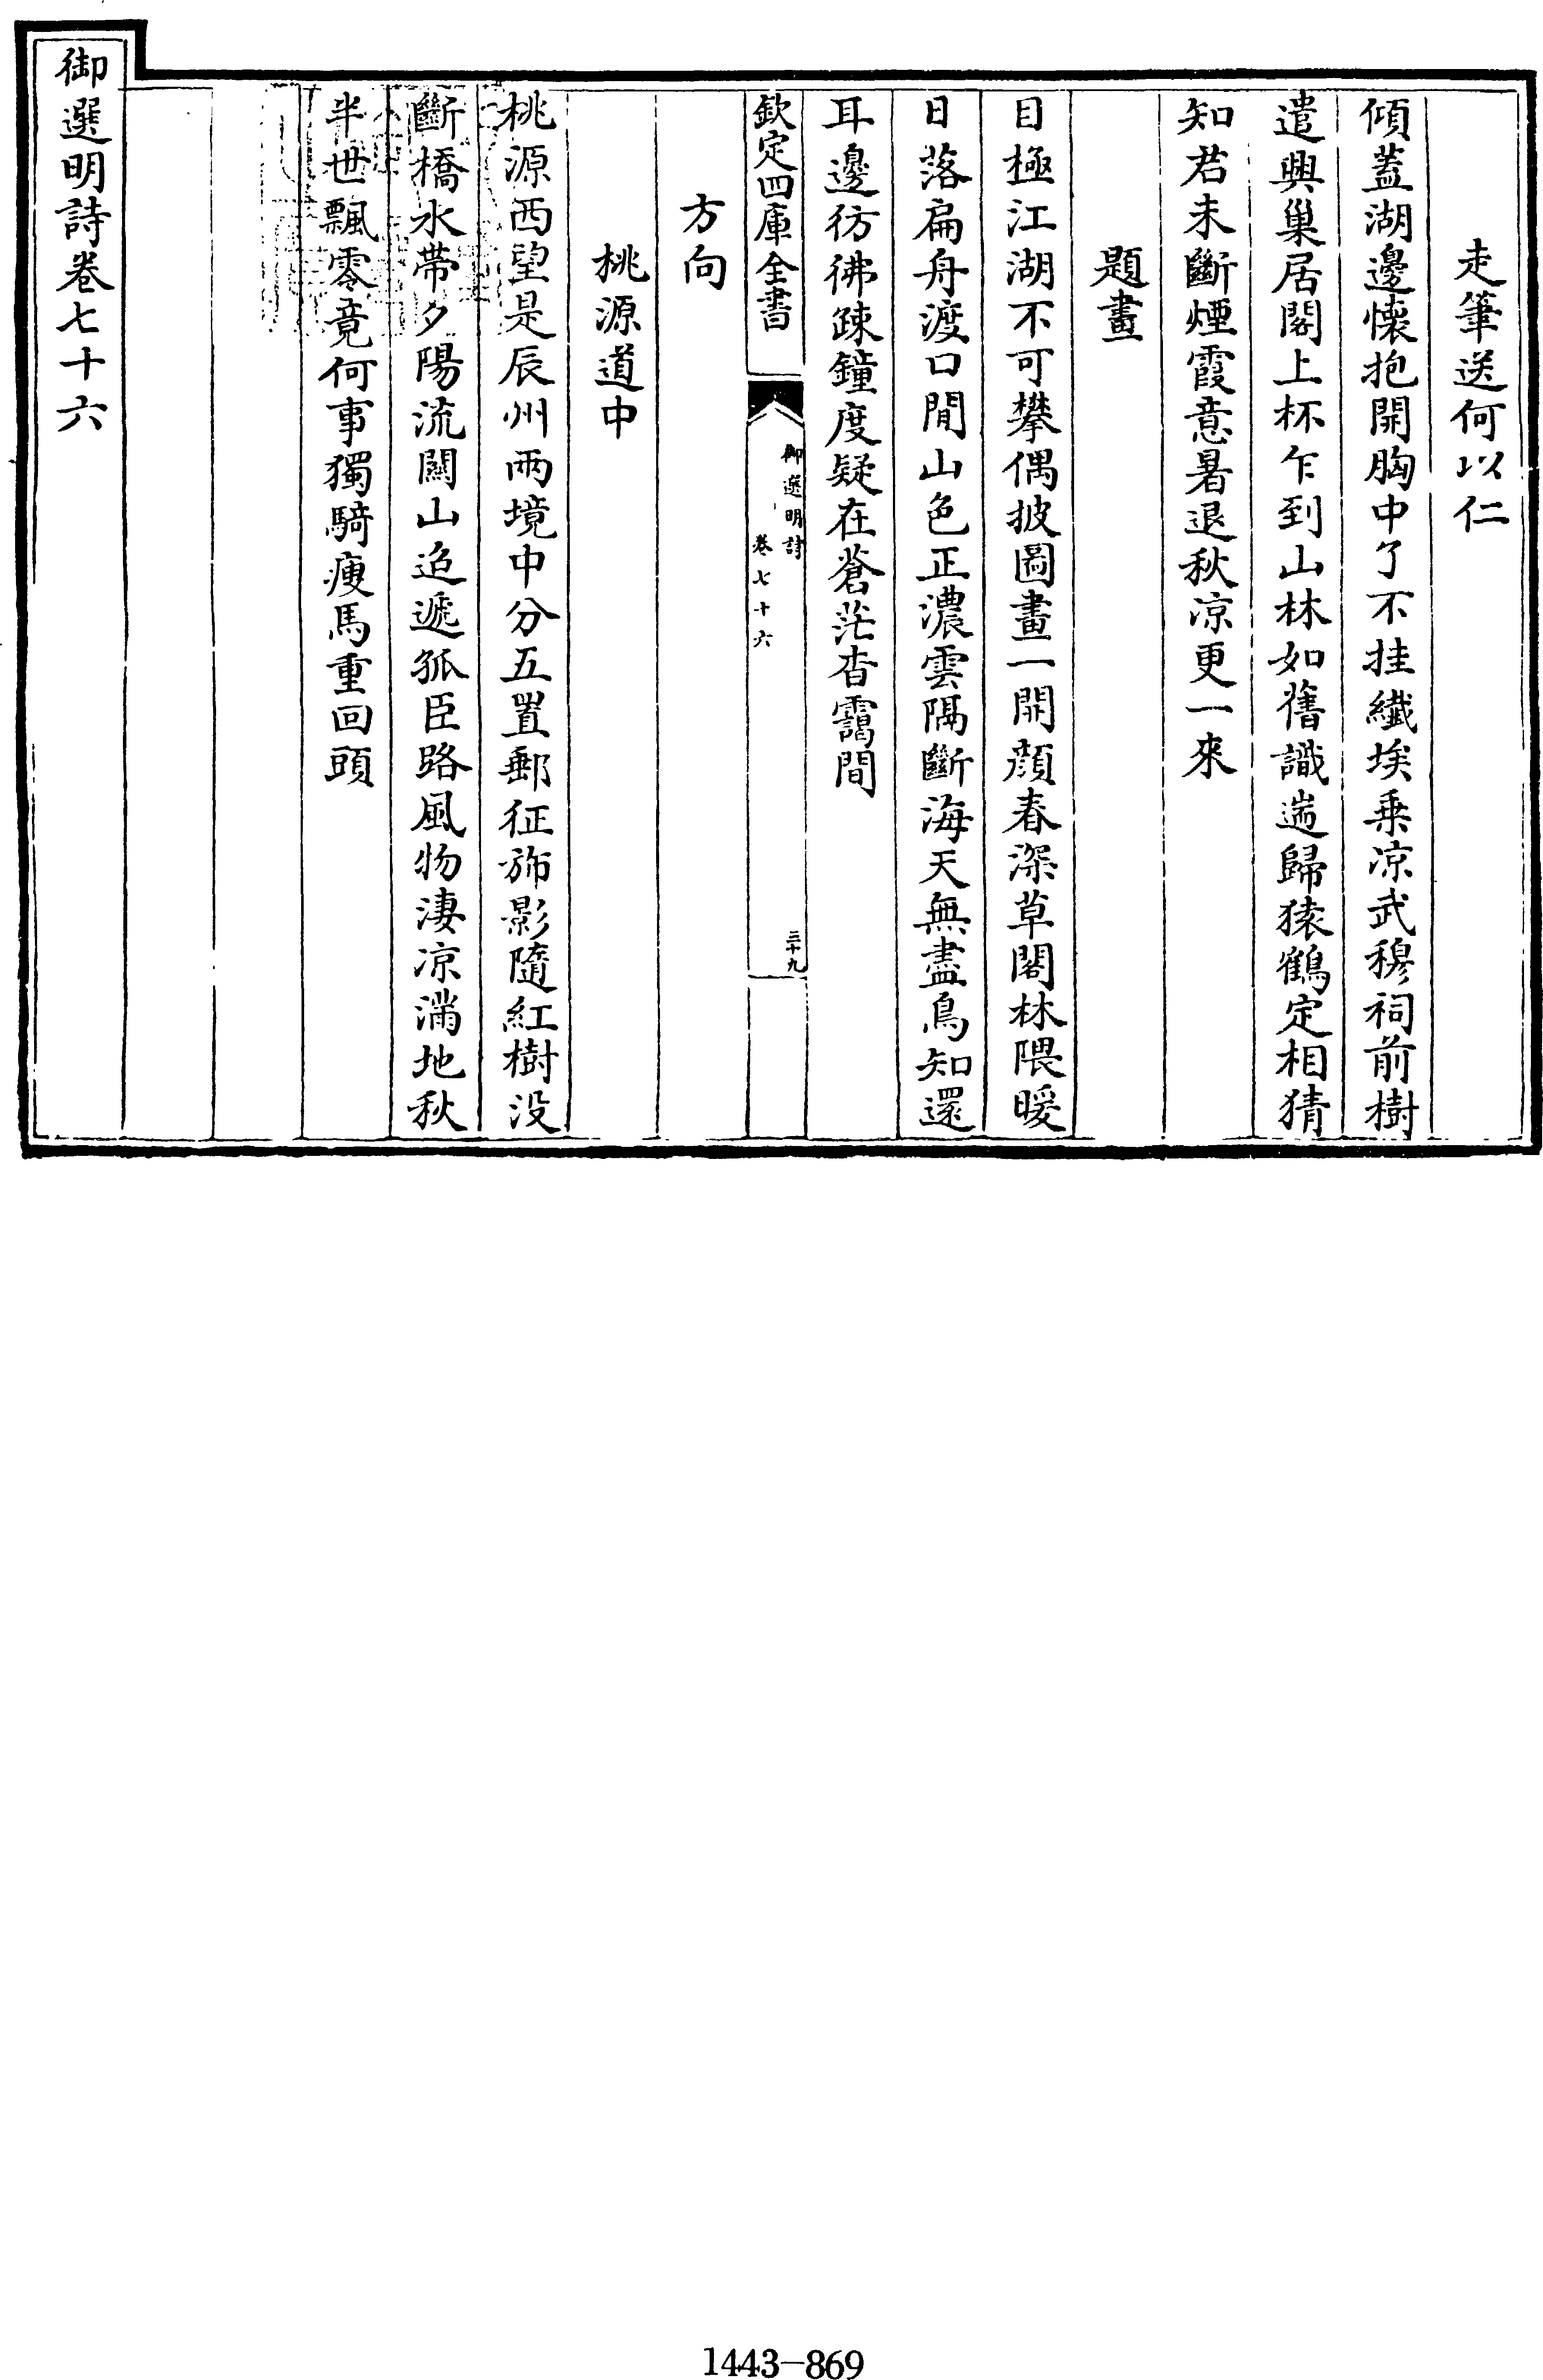 走筆送何以仁
傾蓋湖邊懷抱開胸中了不挂纖埃乗凉武穆祠前樹
遣興巢居閣上杯乍到山林如舊識遄歸猿鶴定相猜
知君未斷煙霞意暑退秋凉更一來
題畫
目極江湖不可攀偶披圖畫一開顔春深草閣林隈暖
日落扁舟渡口閒山色正濃雲隔斷海天無盡鳥知還
耳邊彷彿疎鐘度疑在蒼茫杳靄間
欽定四庫全書
御選明詩
卷七十六
三十九
方向
桃源道中
桃源西望是辰州兩境中分五置郵征斾影隨紅樹没
斷橋水帶夕陽流關山迢遞孤臣路風物淒凉滿地秋
半世飄零竟何事獨騎瘦馬重回頭
御選明詩卷七十六
1443-869